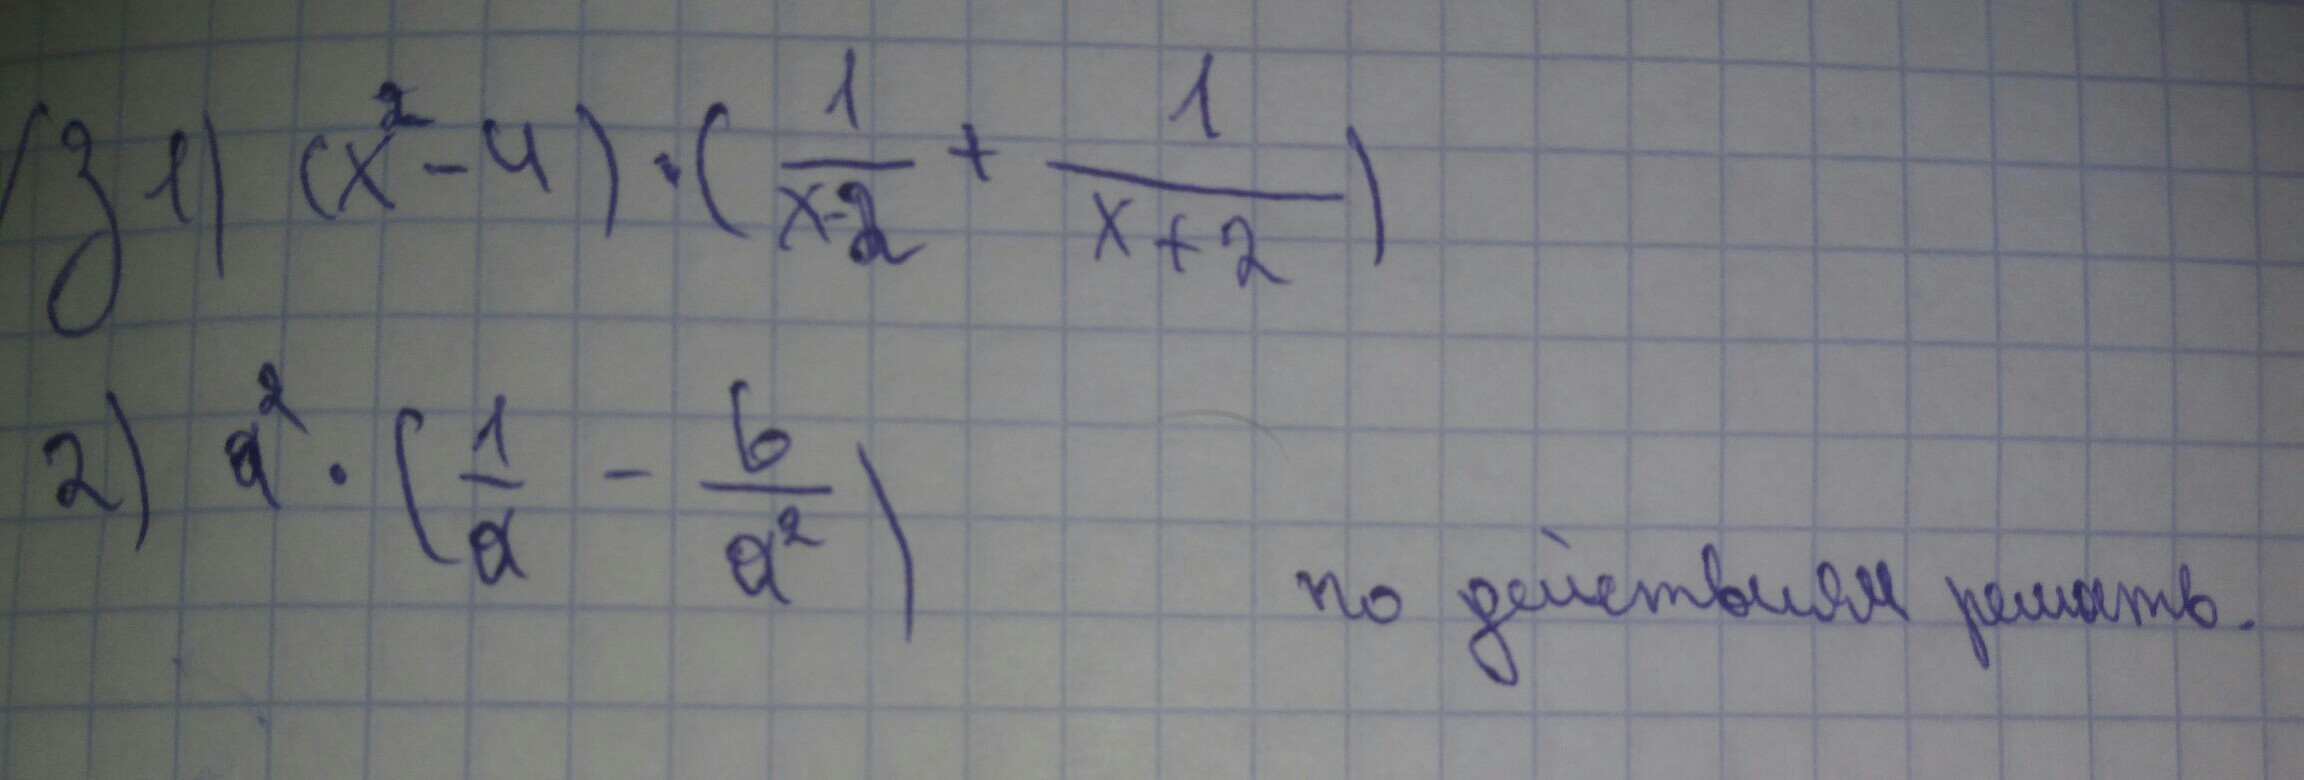 /з 1) (x² - 4) · (1/(x-2) + 1/(x+2))
2) a² · (1/a - b/a²)
по действиям решать.